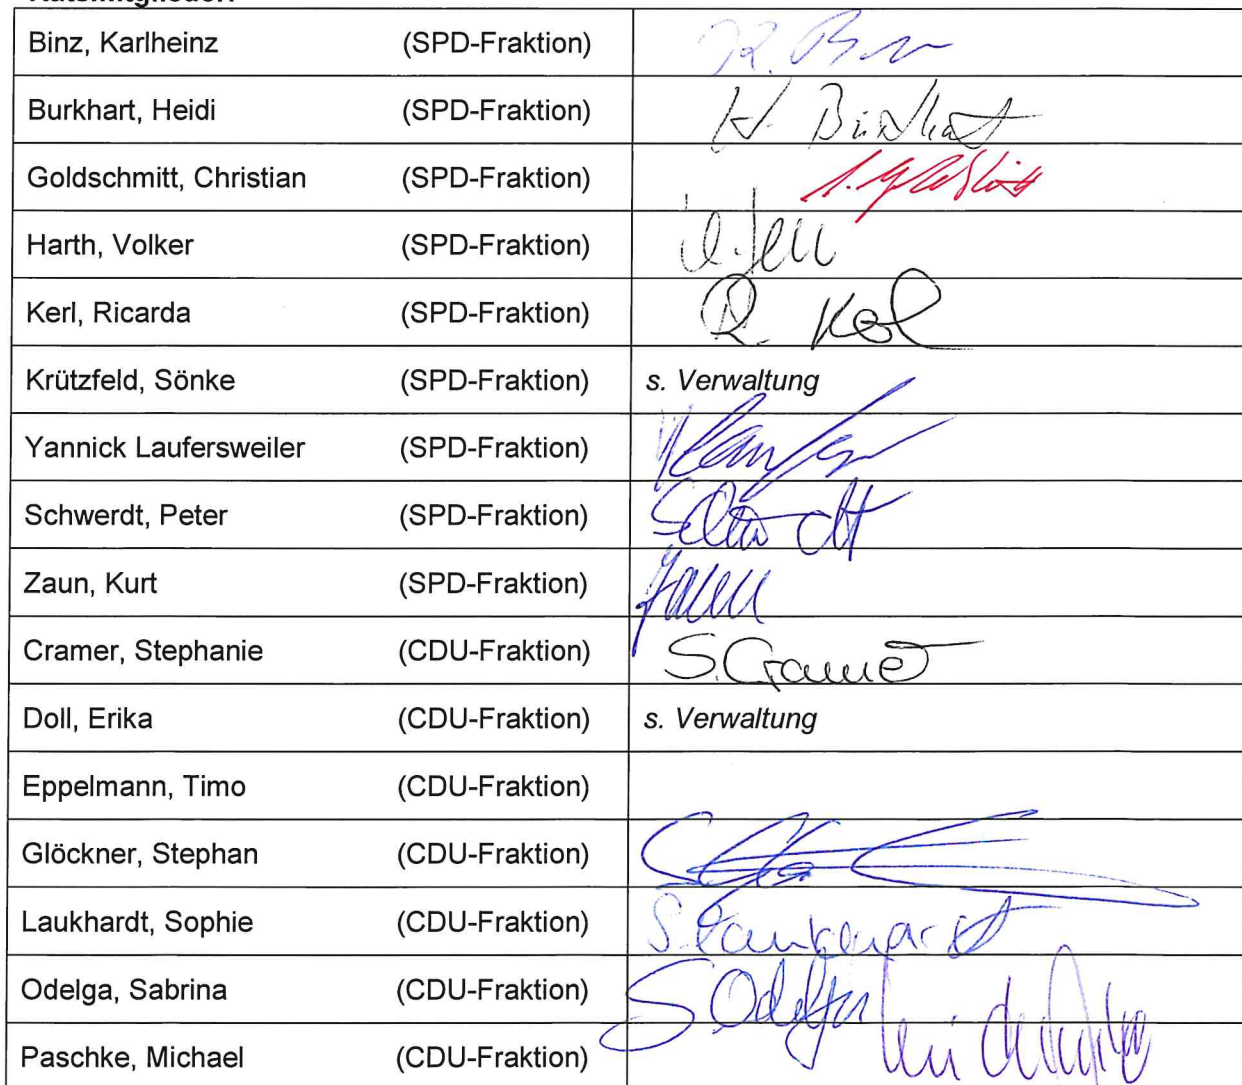 Ratsmitglieder:
Binz, Karlheinz (SPD-Fraktion) R. Binz
Burkhart, Heidi (SPD-Fraktion) H. Burkhart
Goldschmitt, Christian (SPD-Fraktion)
Harth, Volker (SPD-Fraktion)
Kerl, Ricarda (SPD-Fraktion) R. Kerl
Krützfeld, Sönke (SPD-Fraktion) s. Verwaltung
Yannick Laufersweiler (SPD-Fraktion)
Schwerdt, Peter (SPD-Fraktion) Schwerdt
Zaun, Kurt (SPD-Fraktion) Zaun
Cramer, Stephanie (CDU-Fraktion) S. Cramer
Doll, Erika (CDU-Fraktion) s. Verwaltung
Eppelmann, Timo (CDU-Fraktion)
Glöckner, Stephan (CDU-Fraktion)
Laukhardt, Sophie (CDU-Fraktion) S. Laukhardt
Odelga, Sabrina (CDU-Fraktion) S Odelga
Paschke, Michael (CDU-Fraktion)